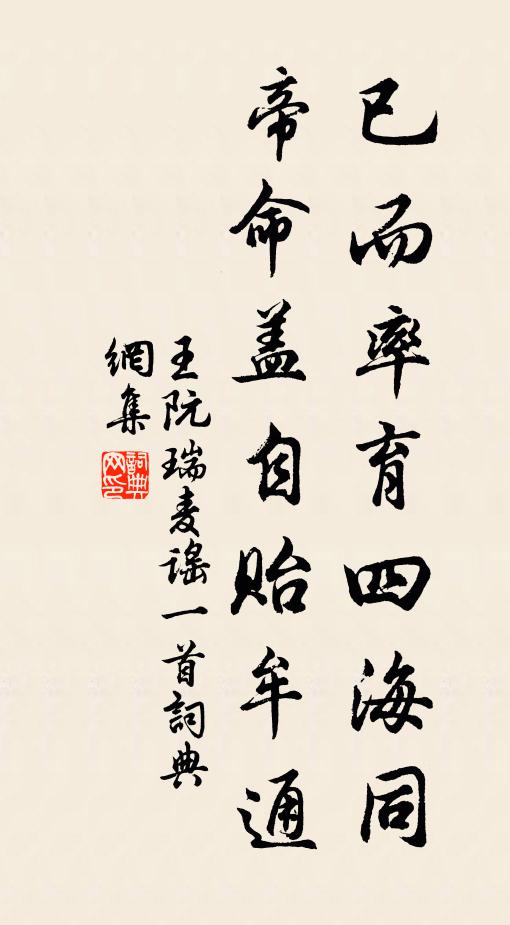 已而率育四海同
帝命盖自贻牟通
王阮瑞麦謠一首詞典
網集
詞典网印